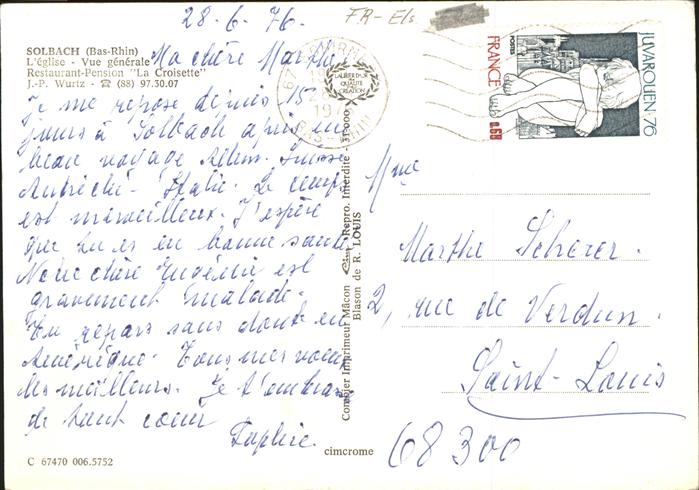 28-6-76.
FR-Els
SOLBACH (Bas-Rhin)
L'église - Vue générale
Restaurant-Pension "La Croisette"
J.-P. Wurtz - ☎ (88) 97.30.07
Ma chère Marthe
Je me repose depuis 15
jours à Solbach après un
beau voyage Allem. Suisse
Autriche - Italie. Le temps
est merveilleux. J'espère
que tu es en bonne santé
Notre chère Eugénie est
gravement malade.
Tu repars sans doute en
Amérique. Tous mes voeux
les meilleurs. Je t'embrasse
de tout coeur
C 67470 006.5752
cimcrome
Combier Imprimeur Mâcon Repro. Interdite - 31-000
Blason de R. LOUIS
JUVAROUEN 76
POSTES
FRANCE
0,60
Mme
Marthe Scherer.
2, rue de Verdun.
Saint-Louis
68300